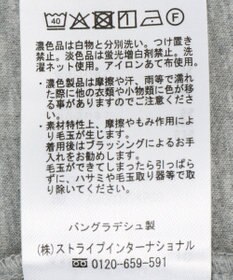 40
F
濃色品は白物と分別洗い。つけ置き
禁止。淡色品は蛍光増白剤禁止。洗
濯ネット使用。アイロンあて布使用。
・濃色製品は摩擦や汗、雨等で濡れ
た際に他の衣類や小物類に色が移
る事がありますのでご注意くださ
い。
・素材特性上、摩擦やもみ作用によ
り毛玉が生じます。
着用後はブラッシングによるお手入
れをお勧めします。
毛玉ができてしまったら引っぱら
ずに、ハサミや毛玉取り器等で取
り除いてください。
バングラデシュ製
(株)ストライプインターナショナル
0120-659-591